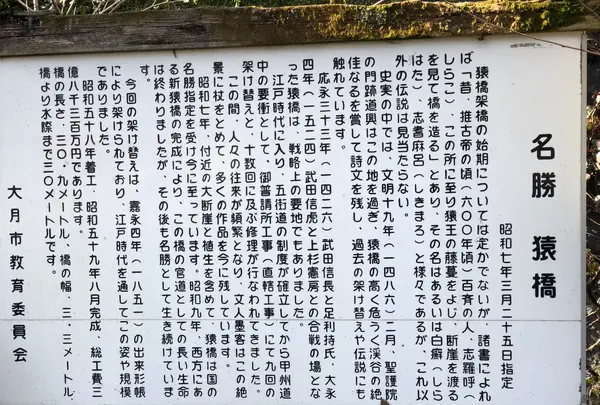 名勝 猿橋
昭和七年三月二十五日指定
猿橋架橋の始期については定かでないが、諸書によれ
ば「昔、推古帝の頃(六〇〇年頃)百斉の人、志羅呼(
しらこ)、この所に至り猿王の藤蔓をよじ、断崖を渡る
を見て橋を造る」とあり、その名はあるいは白癬(しら
はた)、志耆麻呂(しきまろ)と様々であるが、これ以
外の伝説は見当たらない。
史実の中では、文明十九年(一四八六)二月、聖護院
の門跡道興はこの地を過ぎ、猿橋の高く危うく渓谷の絶
佳なるを賞して詩文を残し、過去の架け替えや伝説にも
触れています。
応永三十三年(一四二六)武田信長と足利持氏、大永
四年(一五二四)武田信虎と上杉憲房との合戦の場とな
った猿橋は、戦略上の要地でもありました。
江戸時代に入り、五街道の制度が確立してから甲州道
中の要衝として、御普請所工事(直轄工事)にて九回の
架け替えと、十数回に及ぶ修理が行なわれてきました。
この間、人々の往来が頻繁となり、文人墨客はこの絶
景に杖をとめて、多くの作品を今に残しています。
昭和七年、付近の大断崖と植生を含めて、猿橋は国の
名勝指定を受け今に至っています。昭和九年、西方にあ
る新猿橋の完成により、この橋の官道としての長い生命
は終わりましたが、その後も名勝として生き続けていま
す。
今回の架け替えは、嘉永四年(一八五一)の出来形帳
により架けられており、江戸時代を通してこの姿や規模
でありました。
昭和五十八年着工、昭和五十九年八月完成、総工費三
億八千三百万円であります。
橋の長さ、三〇・九メートル、橋の幅、三.三メートル、
橋より水際まで三〇メートルです。
大月市教育委員会